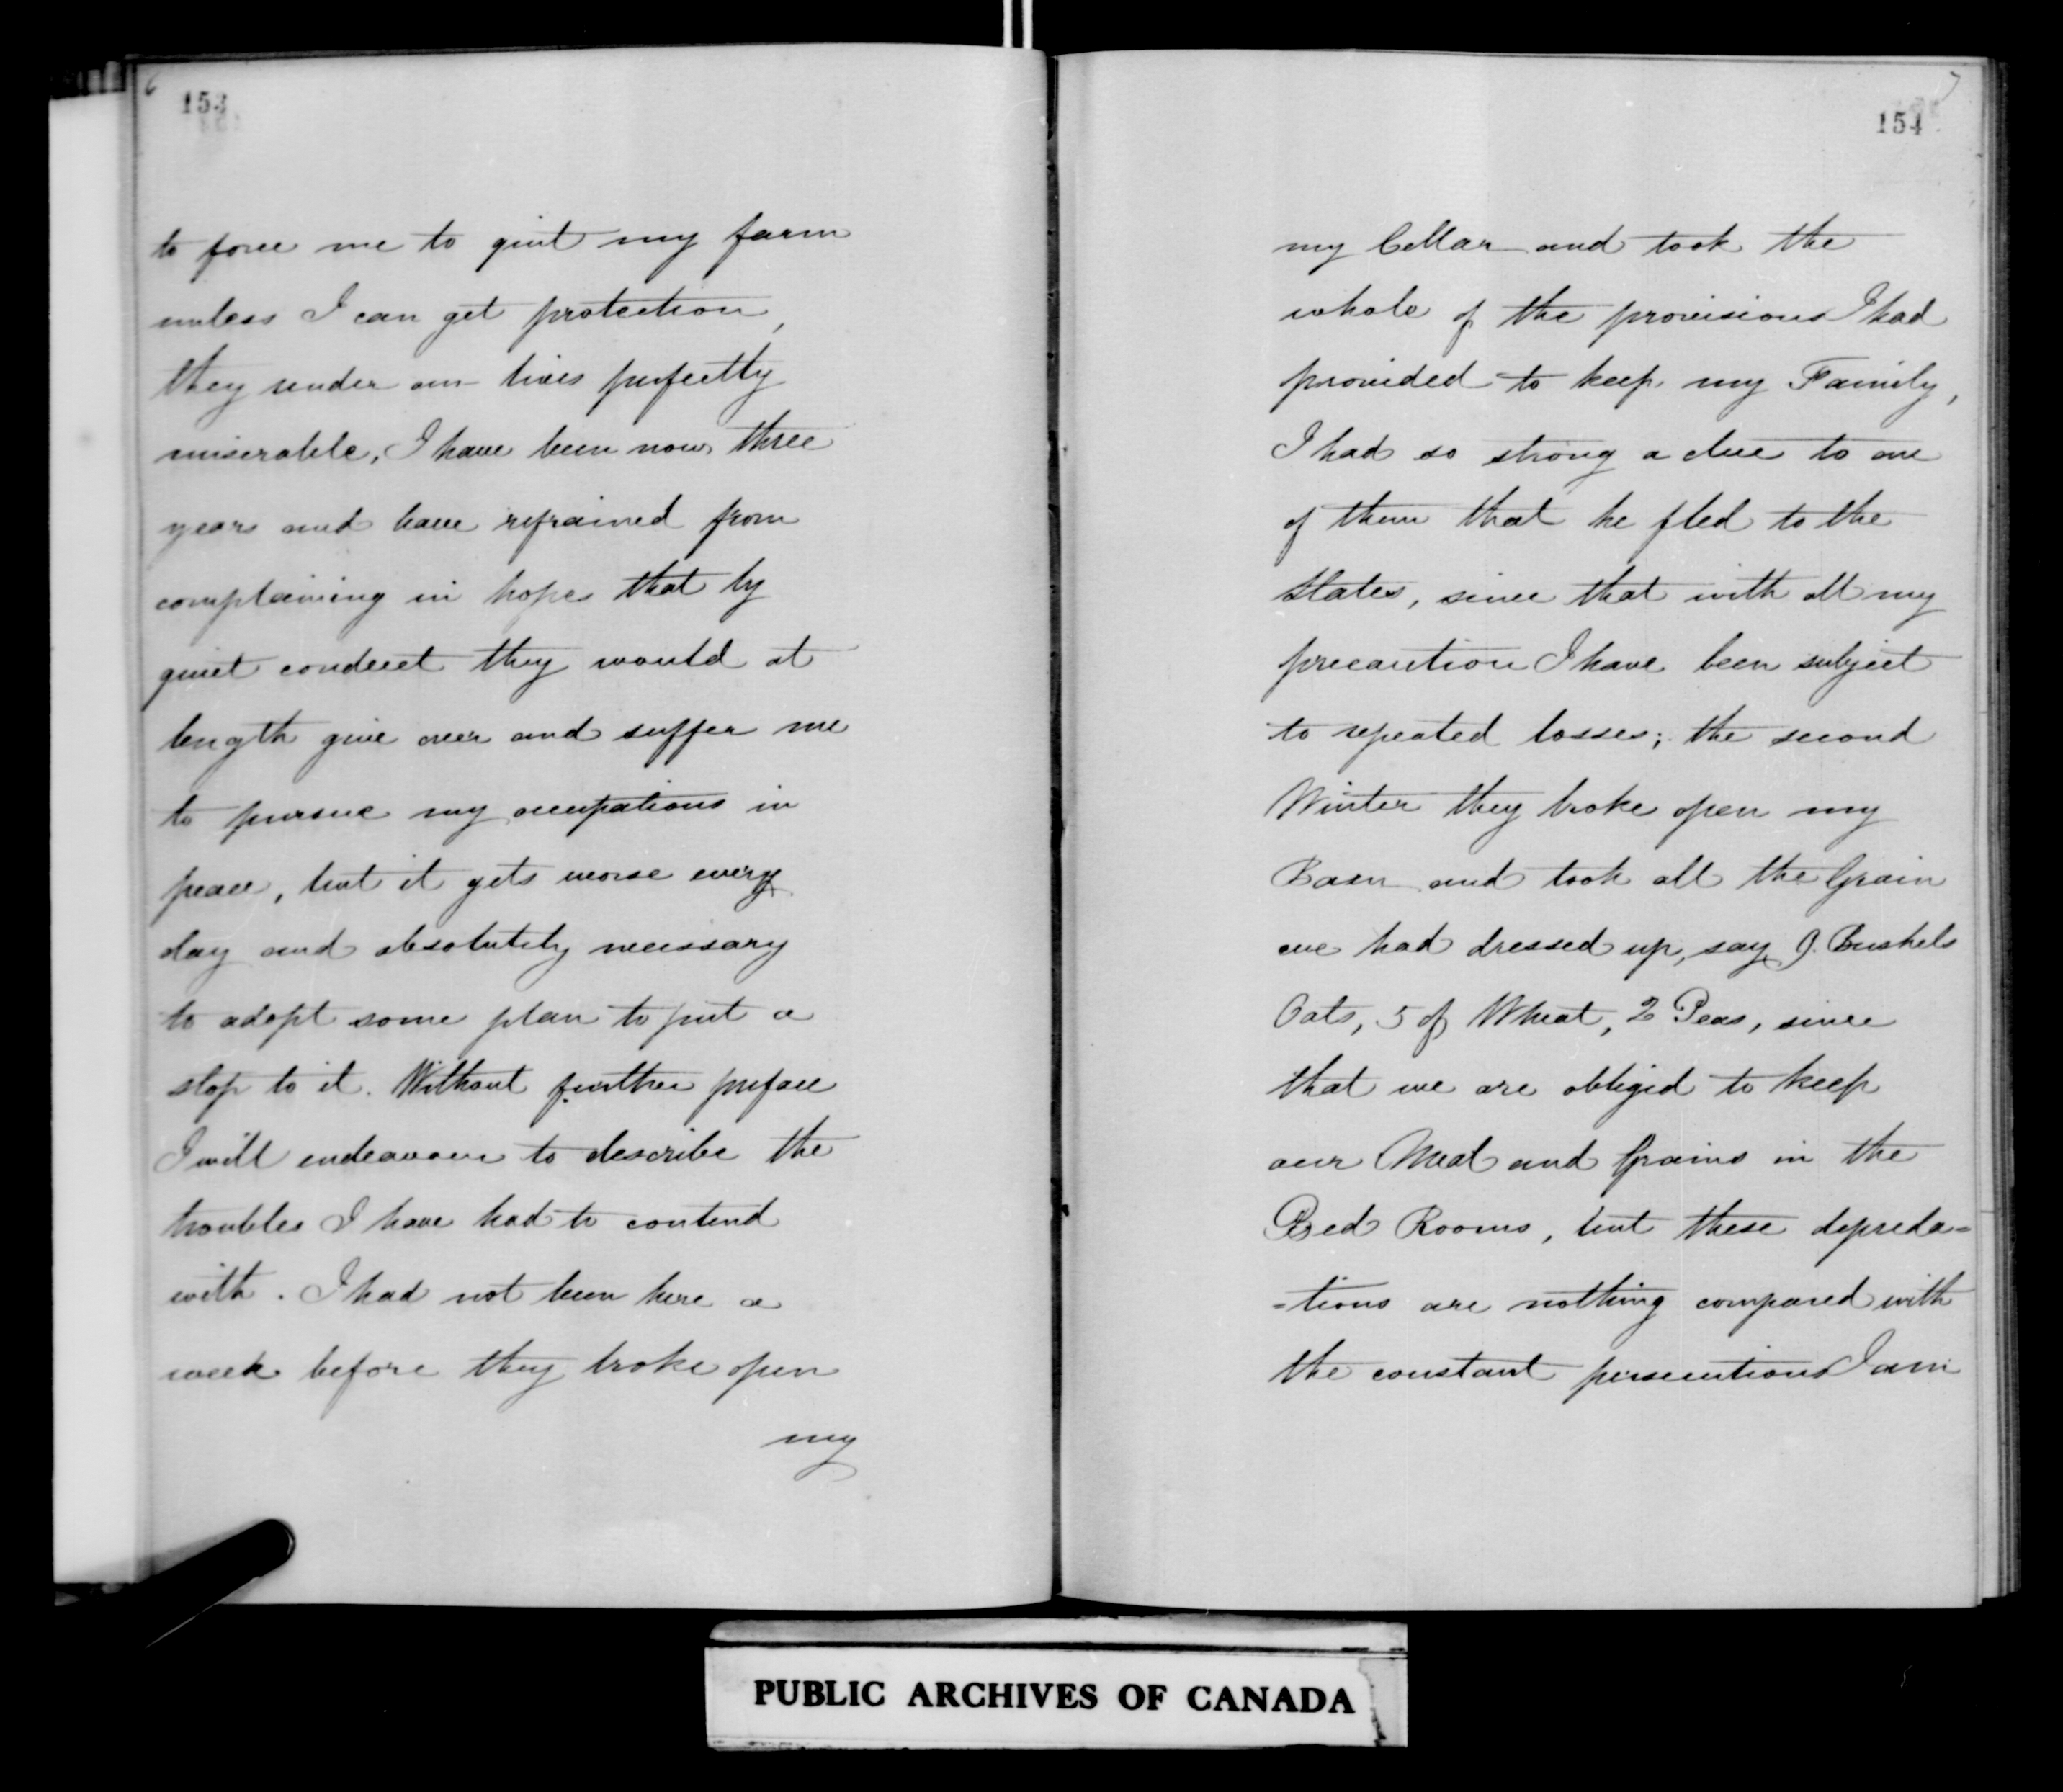 6
153
to force me to quit my farm
unless I can get protection,
they render our lives perfectly
miserable, I have been now three
years and have refrained from
complaining in hopes that by
quiet conduct they would at
length give over and suffer me
to pursue my occupations in
peace, but it gets worse every
day and absolutely necessary
to adopt some plan to put a
stop to it. Without further preface
I will endeavour to describe the
troubles I have had to contend
with. I had not been here a
week before they broke open
my
7
154
my Cellar and took the
whole of the provisions I had
provided to keep my Family,
I had so strong a clue to one
of them that he fled to the
States, since that with all my
precaution I have been subject
to repeated losses; the second
Winter they broke open my
Barn and took all the Grain
we had dressed up, say 9. Bushels
Oats, 5 of Wheat, 2 Peas, since
that we are obliged to keep
our Meat and Grains in the
Bed Rooms, but these depreda=
=tions are nothing compared with
the constant persecutions I am
PUBLIC ARCHIVES OF CANADA